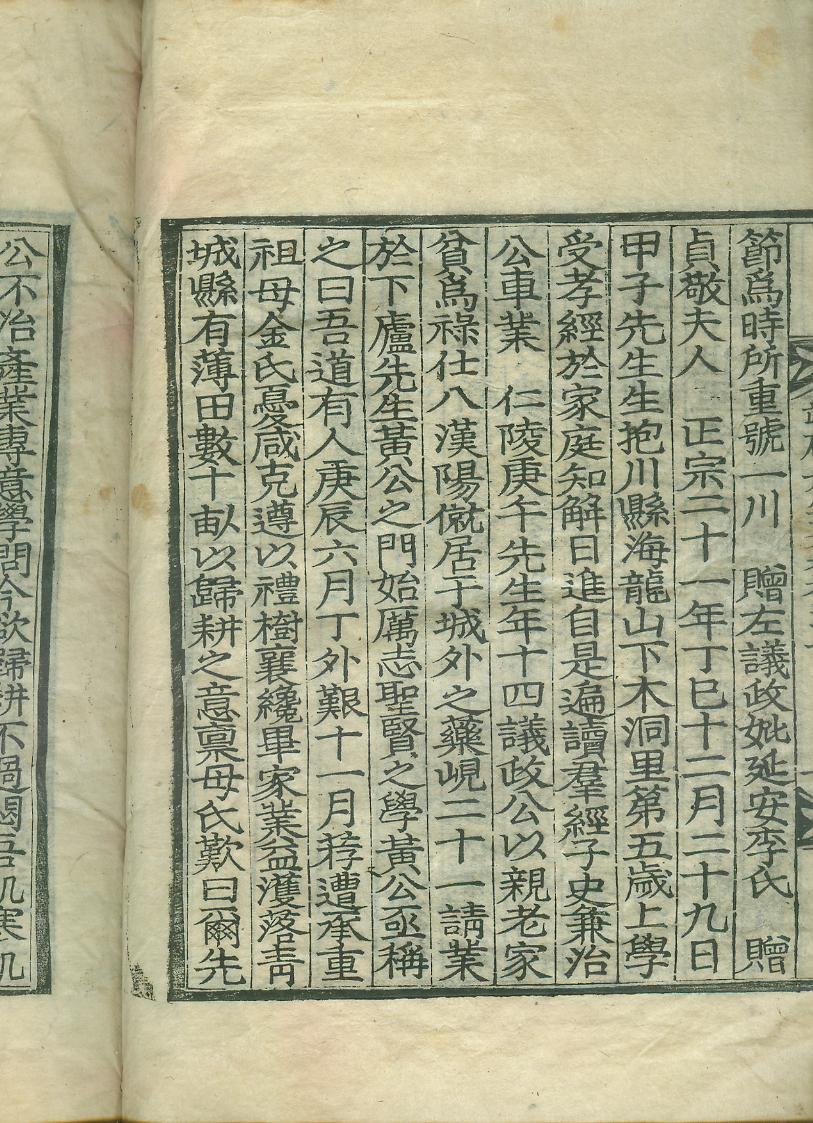 節爲時所重號一川 贈左議政妣延安李氏 贈
貞敬夫人 正宗二十一年丁巳十二月二十九日
甲子先生生抱川縣海龍山下木洞里第五歲上學
受孝經於家庭知解日進自是遍讀羣經子史兼治
公車業 仁陵庚午先生年十四議政公以親老家
貧爲祿仕入漢陽僦居于城外之藥峴二十一請業
於下廬先生黃公之門始厲志聖賢之學黃公亟稱
之曰吾道有人庚辰六月丁外艱十一月荐遭承重
祖母金氏憂咸克遵以禮樹襄纔畢家業益濩落靑
城縣有薄田數十畝以歸耕之意稟母氏歎曰爾先
公不冶產業專意學問今欲歸耕不過悶吾飢寒飢